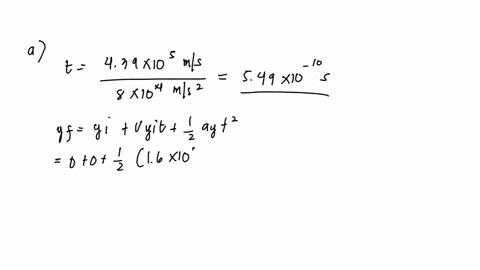 a)
t = 4.39 × 10^5 m/s / 8 × 10^14 m/s^2 = 5.49 × 10^-10 s
yf = yi + Vyit + 1/2 ayt^2
= 0 + 0 + 1/2 (1.6 × 10